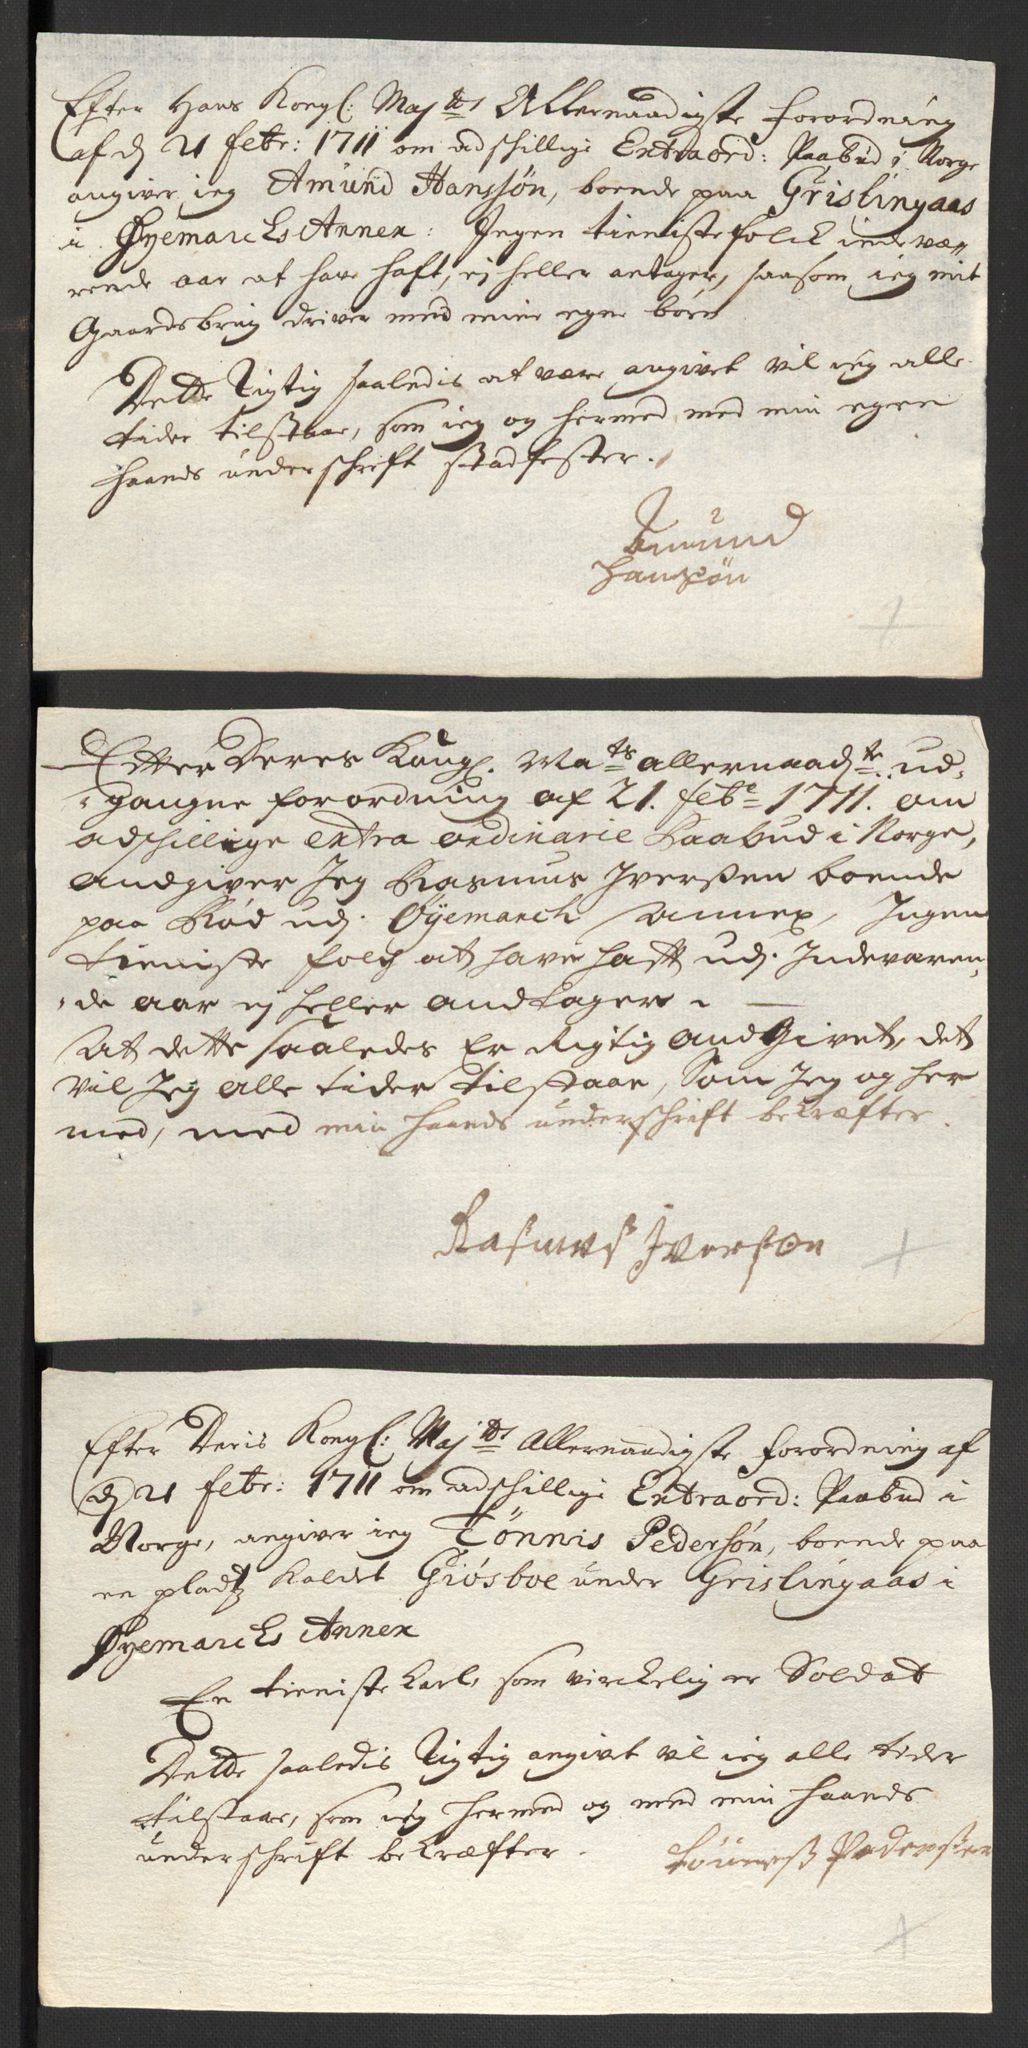 Efter Hans Kongl: Maj ts Allernaadigste forordning
af d 21 febr: 1711 om adschillige Extraord: Paabud i Norge
angiver ieg Amund Hanssøn, boende paa Grislingaas
i Øyemarcks Annex: Ingen tieniste folck indevæ„
rende aar at have haft, ej heller antager, saasom ieg mit
Gaardsbrug driver med mine egne børn
Dette Rigtig saaledis at være angivet vil ieg alle
tider tilstaae, som ieg og hermed med min egen
haands underschrift stadfester.
Amund
Hansøn
Efter Deres Kongl. Ma ts allernaad ste ud„
„gangne forordning af 21. febr 1711. om
adschillige extra ordinarie Paabud i Norge,
andgiver Jeg Rasmus Iverßen boende
paa Rød udj Øyemarch Annex, Ingen
tieniste folch at have haft udj Indevaren„
„de aar ej heller andtager.
At dette saaledes Er Rigtig andgivet, det
vil Jeg alle tider tilstaae, Som Jeg og her
med, med min haands underschrift bekræfter.
Rasmus Iversøn
Efter Deris Kongl: Maj ts Allernaadigste forordning af
d 21 febr: 1711 om adschillige Extraord: Paabud i
Norge, angiver ieg Tønnis Pedersøn, boende paa
en pladtz kaldet Giøsboe under Grislingaas i
Øyemarcks Annex
En tieniste karl, som virckelig er Soldat
Dette saaledis Rigtig angivet vil ieg alle tider
tilstaae, som ieg hermed og med min haands
underschrift bekræfter.
Tønneß Pederßen